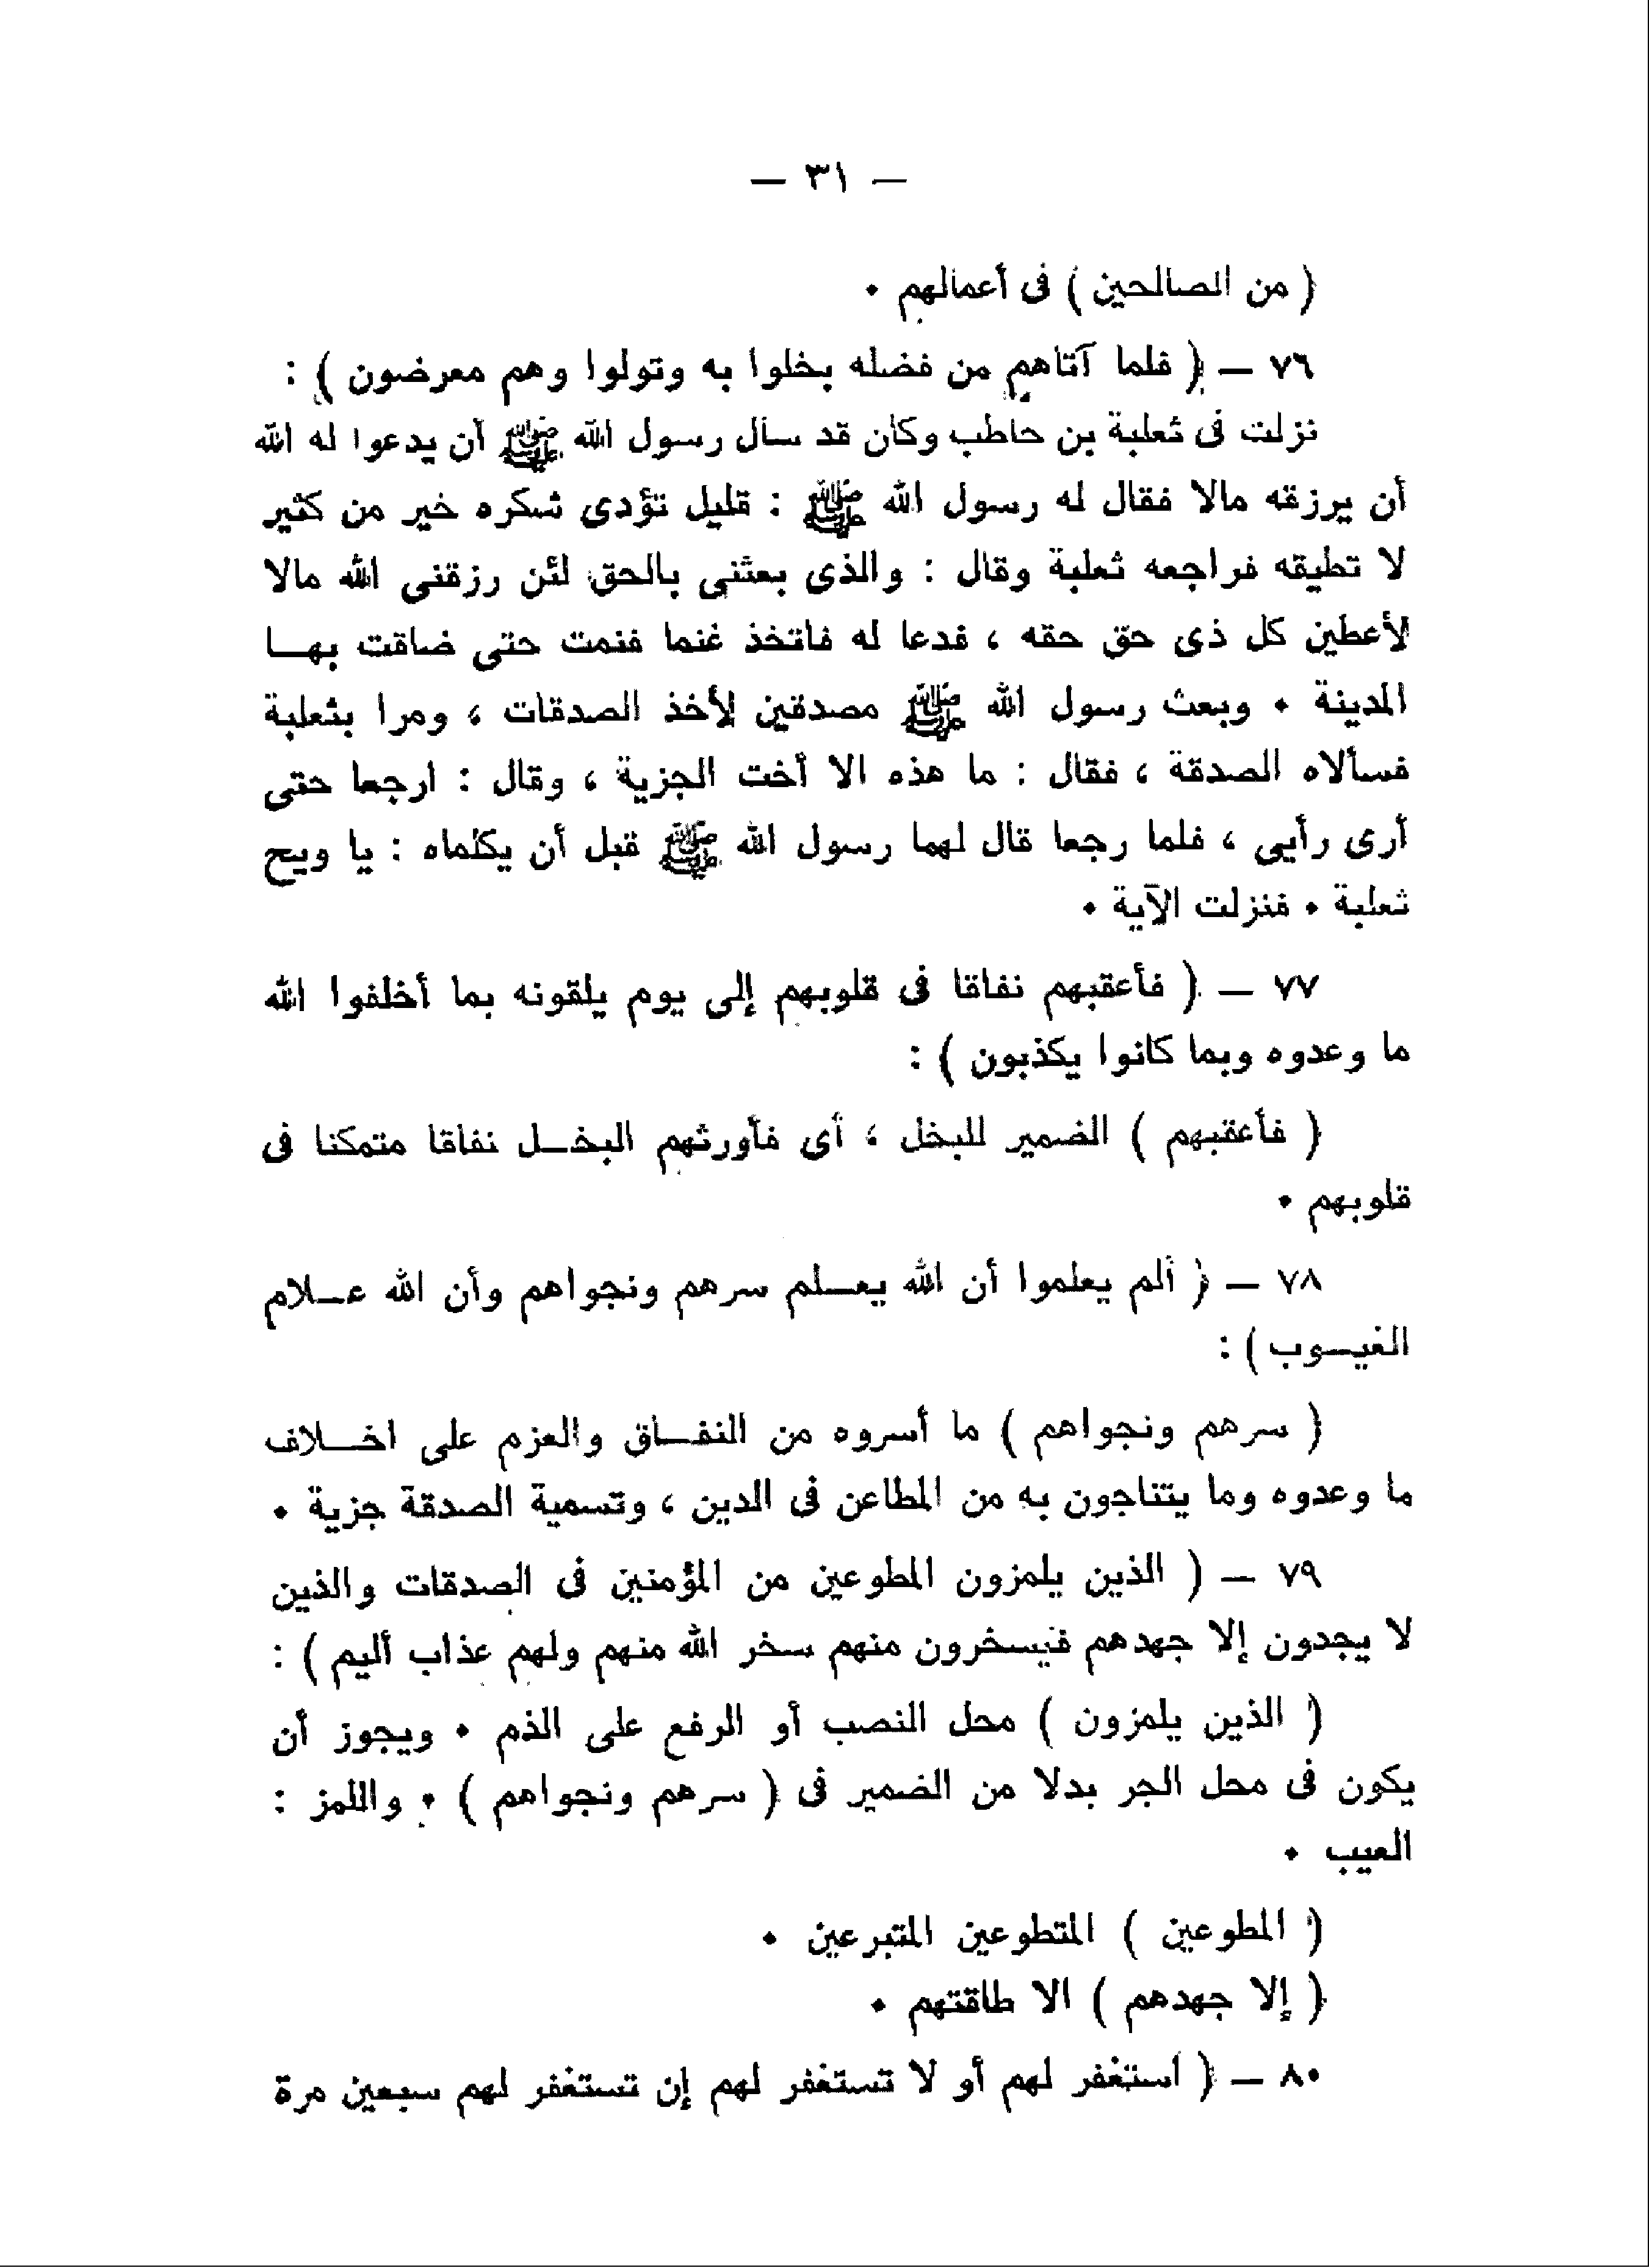 — ٣١ —
( من الصالحين ) فى أعمالهم ٠
٧٦ — ( فلما آتاهم من فضله بخلوا به وتولوا وهم معرضون ) :
نزلت فى ثعلبة بن حاطب وكان قد سأل رسول الله ﷺ أن يدعوا له الله
أن يرزقه مالا فقال له رسول الله ﷺ : قليل تؤدى شكره خير من كثير
لا تطيقه فراجعه ثعلبة وقال : والذى بعثنى بالحق لئن رزقنى الله مالا
لأعطين كل ذى حق حقه ، فدعا له فاتخذ غنما فنمت حتى ضاقت بهـا
المدينة ٠ وبعث رسول الله ﷺ مصدقين لأخذ الصدقات ، ومرا بثعلبة
فسألاه الصدقة ، فقال : ما هذه الا أخت الجزية ، وقال : ارجعا حتى
أرى رأيى ، فلما رجعا قال لهما رسول الله ﷺ قبل أن يكلماه : يا ويح
ثعلبة ٠ فنزلت الآية ٠
٧٧ — ( فأعقبهم نفاقا فى قلوبهم إلى يوم يلقونه بما أخلفوا الله
ما وعدوه وبما كانوا يكذبون ) :
( فأعقبهم ) الضمير للبخل ، أى فأورثهم البخـل نفاقا متمكنا فى
قلوبهم ٠
٧٨ — ( ألم يعلموا أن الله يعـلم سرهم ونجواهم وأن الله عـلام
الغيـوب ) :
( سرهم ونجواهم ) ما أسروه من النفـاق والعزم على اخـلاف
ما وعدوه وما يتناجون به من المطاعن فى الدين ، وتسمية الصدقة جزية ٠
٧٩ — ( الذين يلمزون المطوعين من المؤمنين فى الصدقات والذين
لا يجدون إلا جهدهم فيسخرون منهم سخر الله منهم ولهم عذاب أليم ) :
( الذين يلمزون ) محل النصب أو الرفع على الذم ٠ ويجوز أن
يكون فى محل الجر بدلا من الضمير فى ( سرهم ونجواهم ) ٠ واللمز :
العيب ٠
( المطوعين ) المتطوعين المتبرعين ٠
( إلا جهدهم ) الا طاقتهم ٠
٨٠ — ( استغفر لهم أو لا تستغفر لهم إن تستغفر لهم سبعين مرة